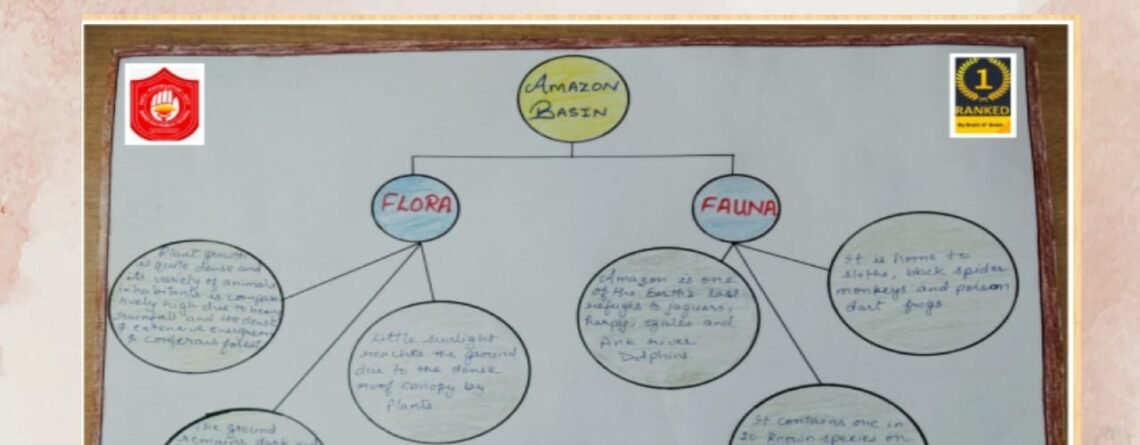 AMAZON
BASIN
1
RANKED
FLORA
FAUNA
Plant growth
is quite dense and
its variety of animal
inhabitants is compara
tively high due to heavy
rainfall and the dense
& extensive evergreen
& coniferous forest
Little sunlight
reaches the ground
due to the dense
roof canopy by
plants.
The ground
remains dark and
Amazon is one
of the Earth's last
refuges to jaguars,
harpy, egales and
Pink river
Dolphins
It is home to
sloths, black spider
monkeys and poison
dart frogs
It contains one in
10 known species on